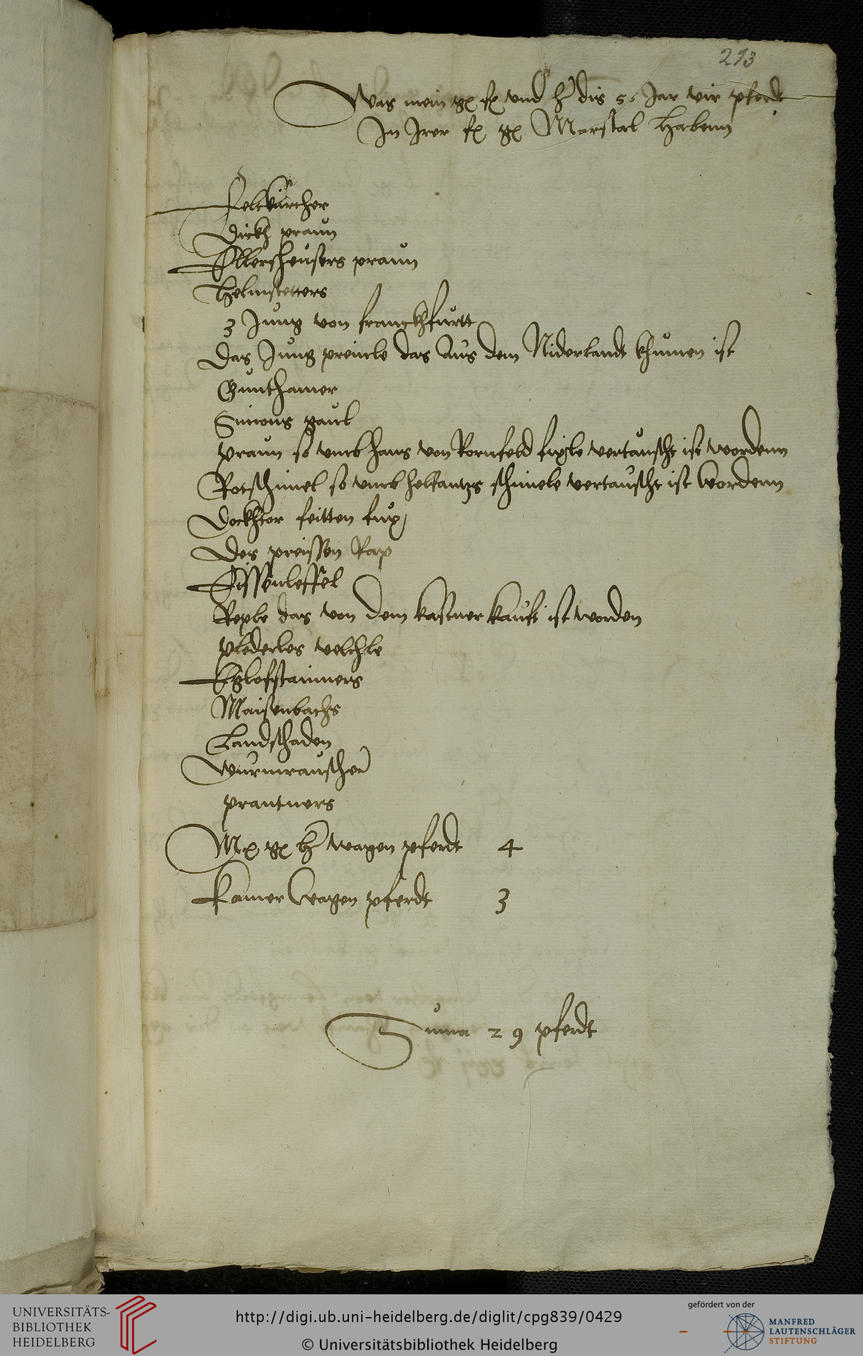 213
Was mein gn fn vnd h dis 51 Jar vir pferdt
In Irer fn gn Marstal habenn
Feltkircher
Dickh praun
Ellersheusers praun
Helmsteters
3 Jung von franckhfurtt
Das Jung preinle das aus dem Niderlandt khumen ist
Gunthamer
Simons gaul
praun so vmb hans von Kornfeld fuxle vertauscht ist wordenn
Rotschimel so vmb helfantzs schimele vertauscht ist wordenn
Dockhtor feitten fux
Des preissen Rap
Eissenleffel
Reple das von dem kastner kauft ist worden
plederles velchle
Eglofstainners
Maisenbachs
Landschaden
Wurmrauscher
prantners
M gn h wagen pferdt 4
Kamer wagen pferdt 3
Suma 29 pferdt
UNIVERSITÄTS-
BIBLIOTHEK
HEIDELBERG
http://digi.ub.uni-heidelberg.de/diglit/cpg839/0429
© Universitätsbibliothek Heidelberg
gefördert von der
MANFRED
LAUTENSCHLÄGER
STIFTUNG